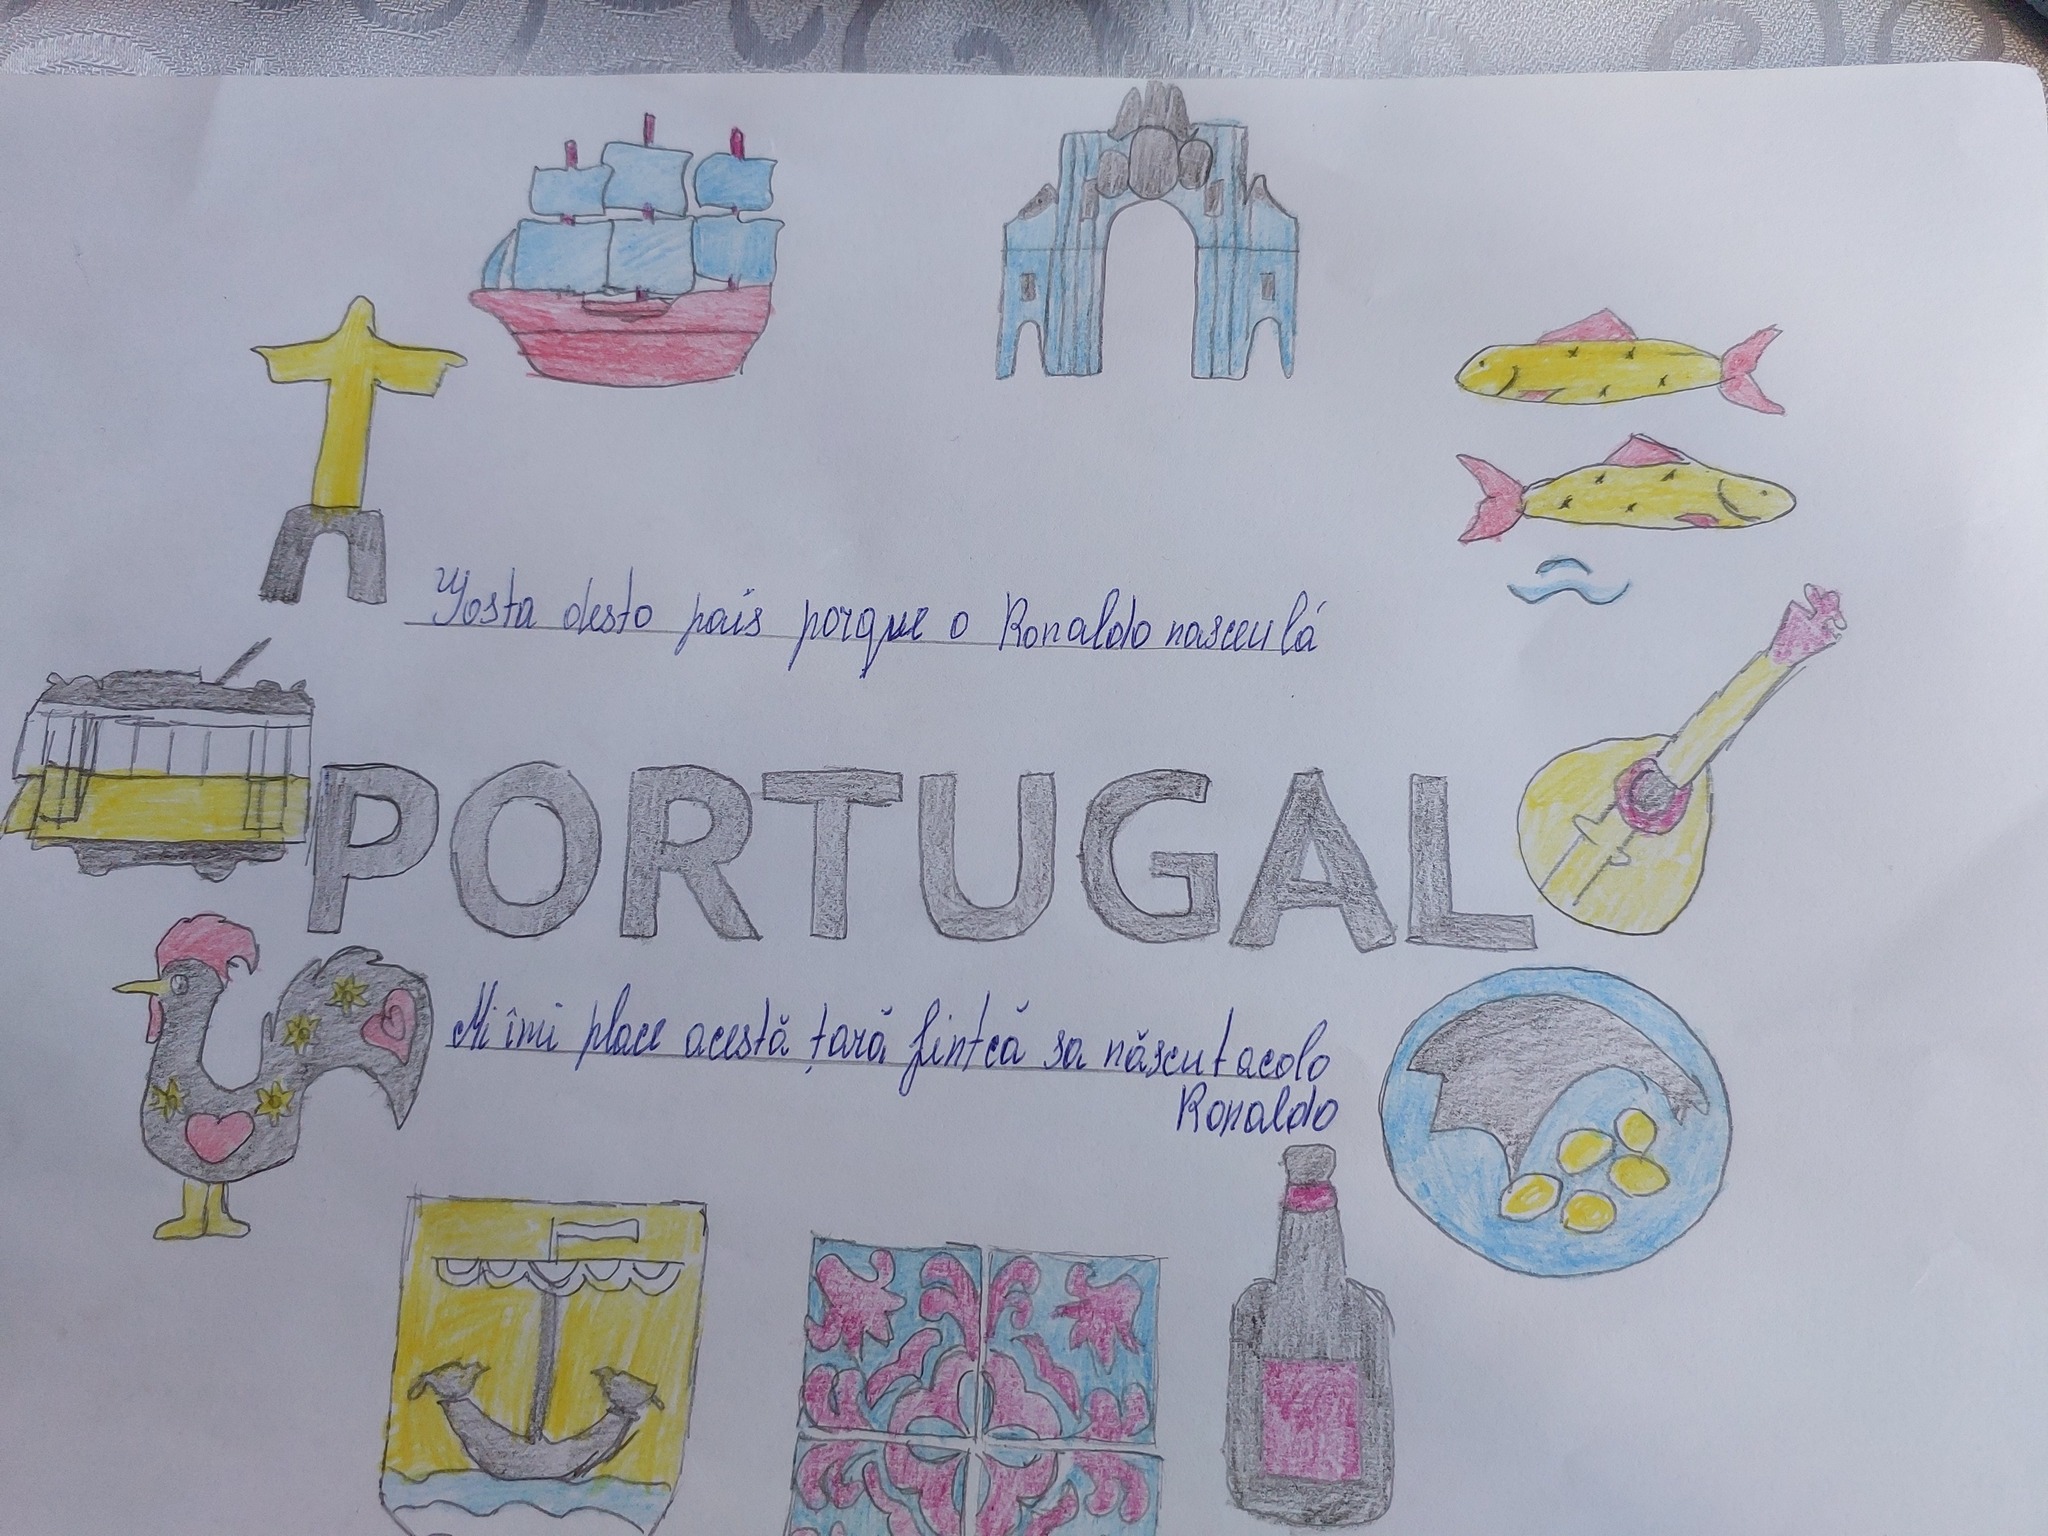 Gosta desto pais porque o Ronaldo nasceu lá
PORTUGAL
Mi îmi place acestă țară fintcă sa născut acolo
Ronaldo